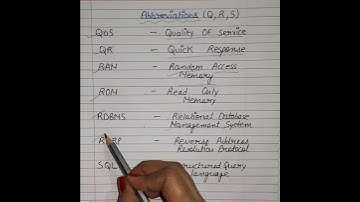 Abbreviations (Q, R, S)
QOS - Quality Of Service
QR - Quick Response
RAM - Random Access
Memory
ROM - Read Only
Memory
RDBMS - Relational Database
Management System
- Reverse Address
Resolution Protocol
SQL - Structured Query
Language